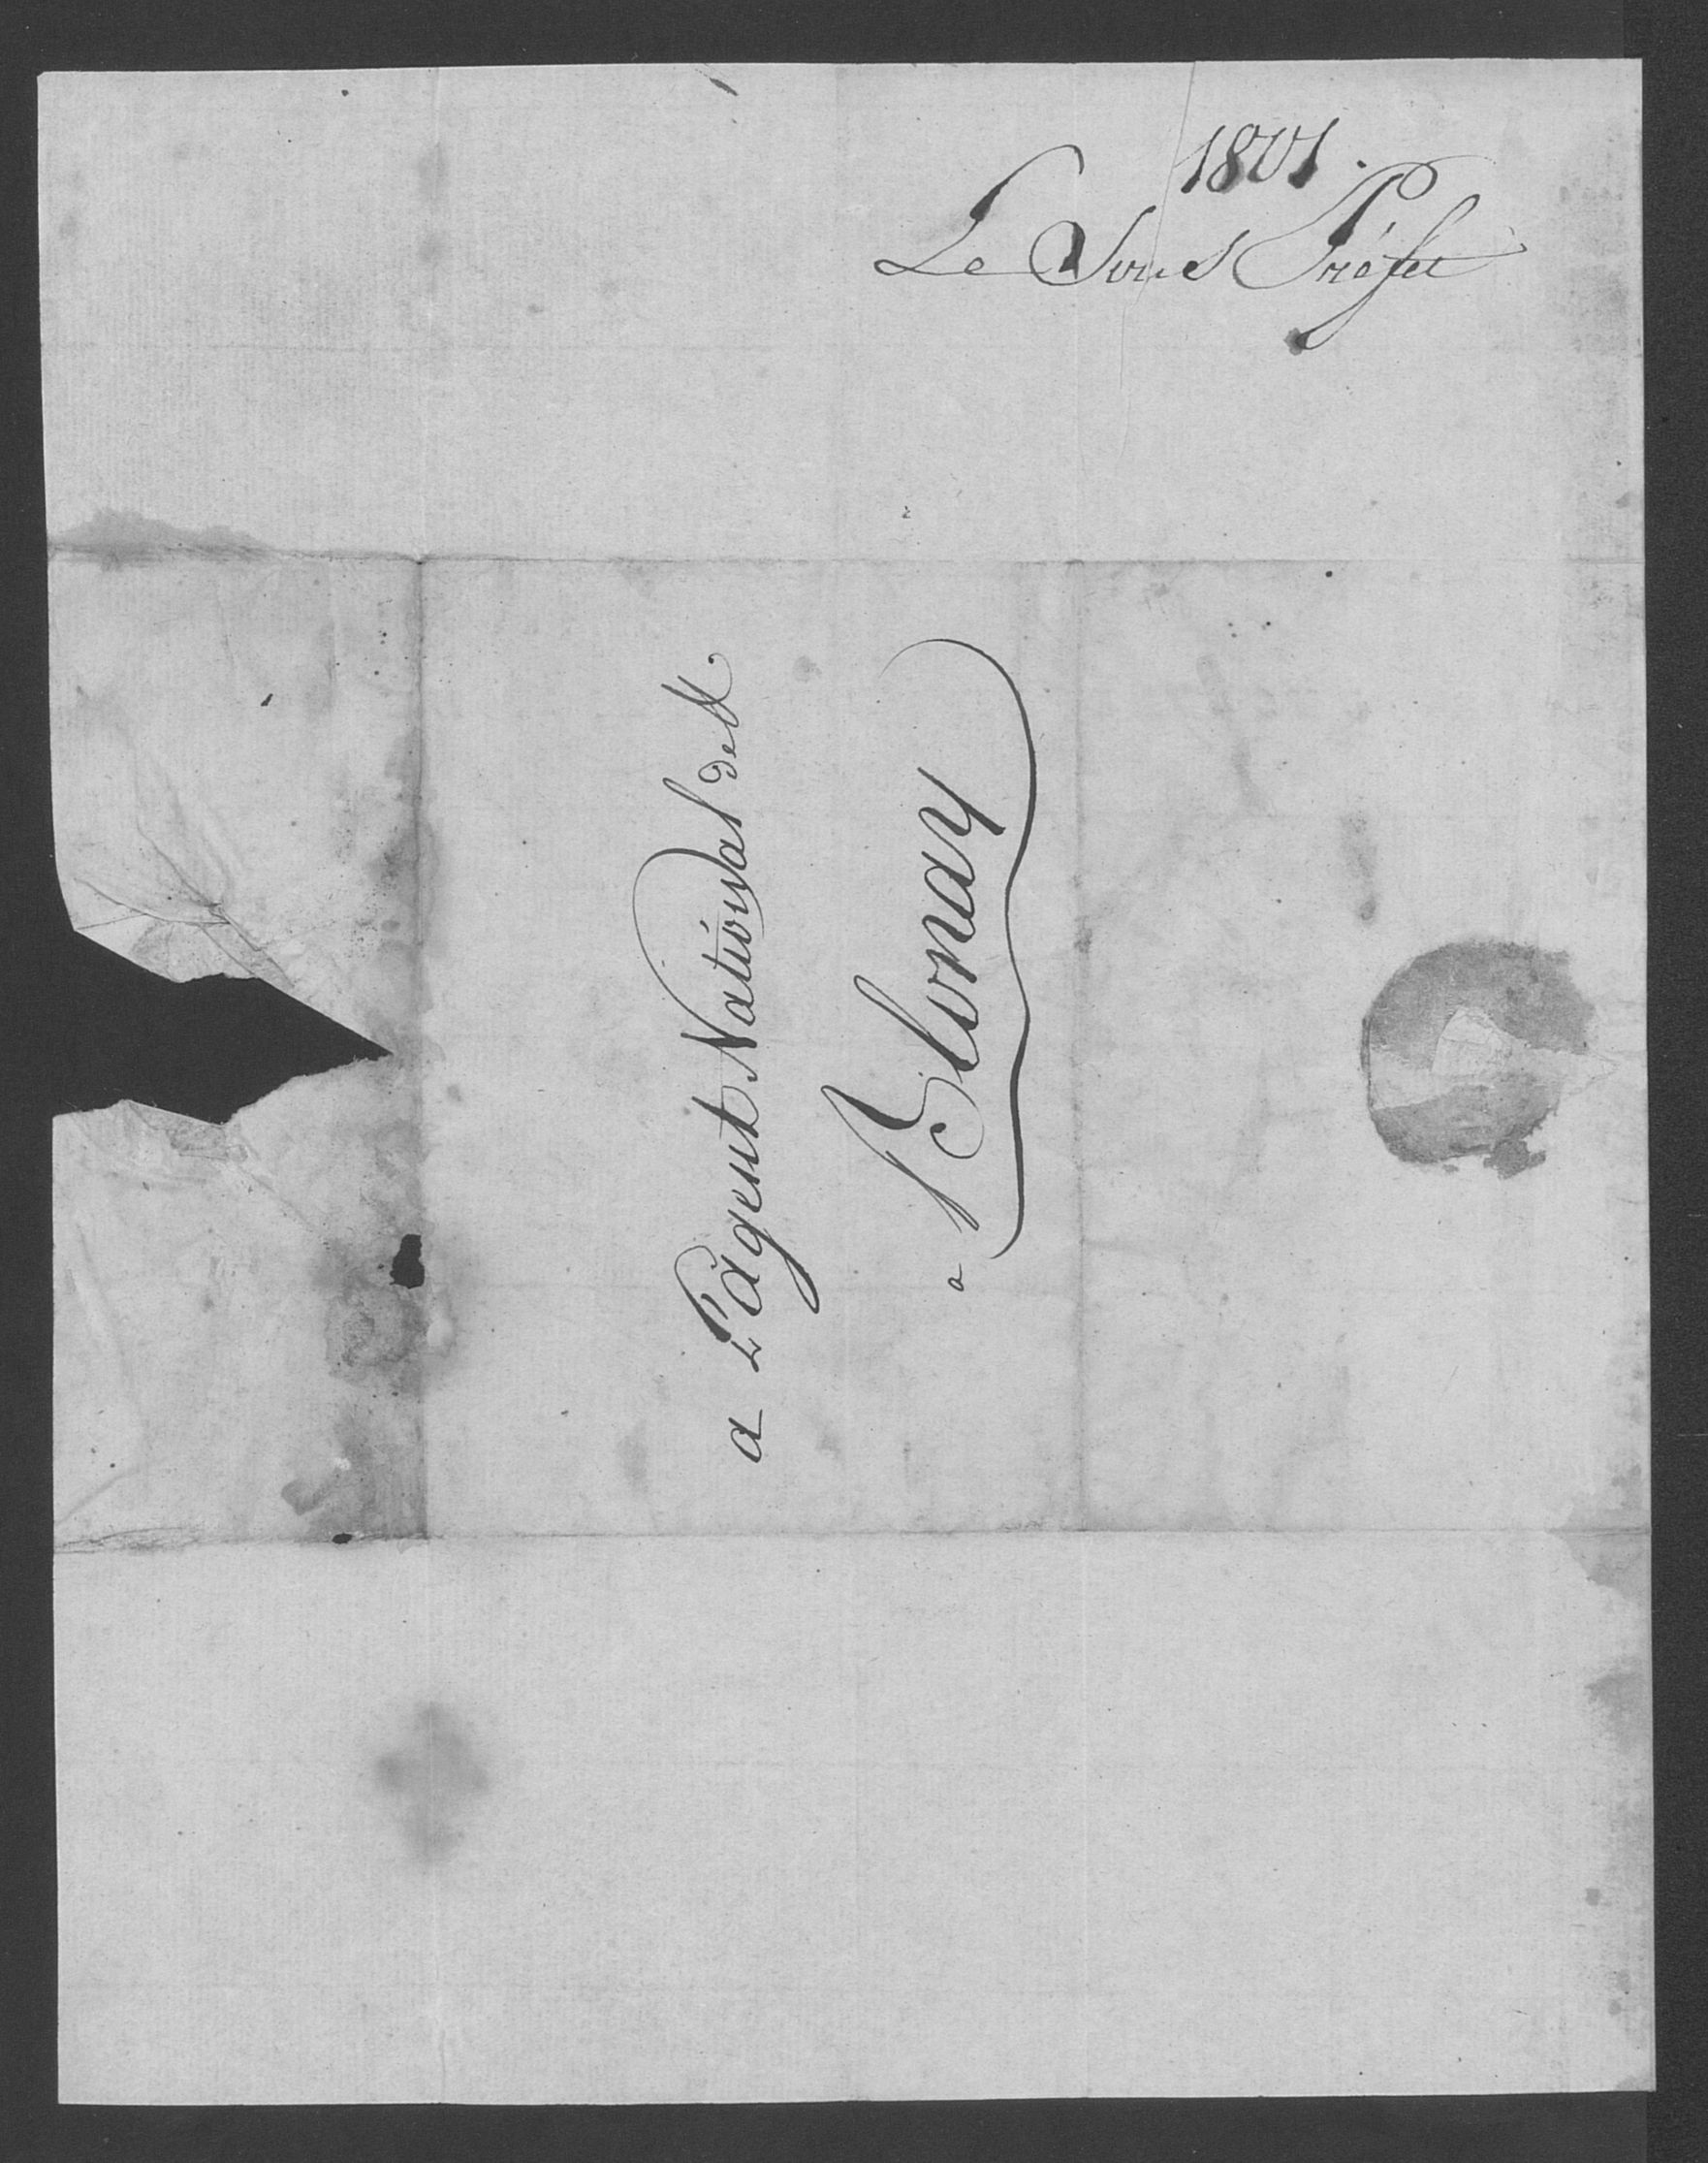 1801.
Le Sous Préfet
a L'agent National de
a Blonay